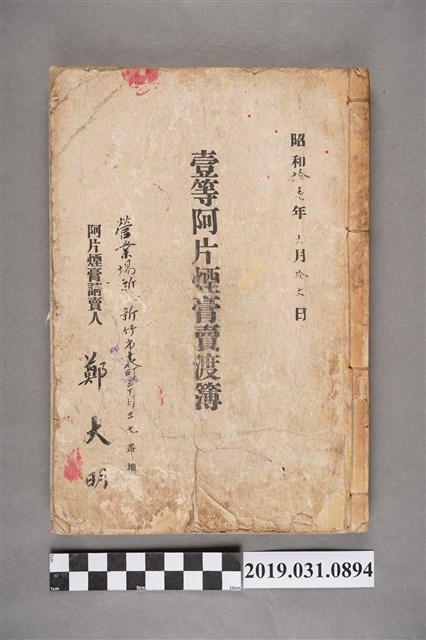 昭和拾壱年 月拾 日
壹等阿片煙膏賣渡簿
營業場所 新竹市表町三丁目三七番地
阿片煙膏請賣人 鄭大明
2019.031.0894